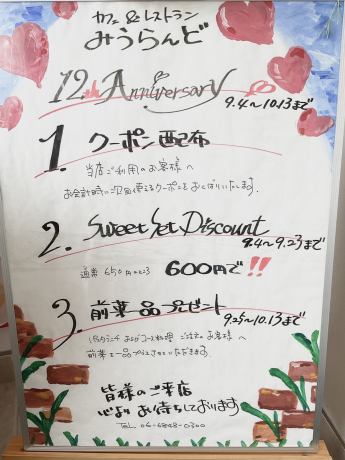 カフェ&レストラン
みうらんど
12th Anniversary
9.4〜10.13まで
1. クーポン配布
当店ご利用のお客様へ
お会計時に次回使えるクーポンをおくばりいたします。
2. Sweet Set Discount
9.4〜9.23まで
通常650円のところ 600円で!!
3. 前菜一品プレゼント
9.25〜10.13まで
およびコース料理 ご注文のお客様へ
前菜を一品プラスさせていただきます。
皆様のご来店
心よりお待ちしております
TEL 06-6848-0300